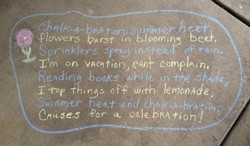 Chalk-a-bration, summer heet
flowers burst in blooming beet.
Sprinklers spray instead of rain,
I'm on vacation, cant complain,
Reading books while in the shade,
I top things off with lemonade,
Summer heat and chalk-a-bration,
Causes for a celebration!